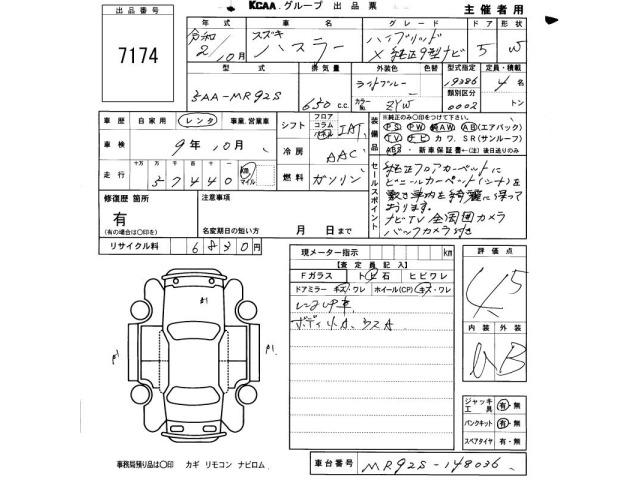 出品番号 KCAA グループ 出品票 主催者用
7174
年式 車名 グレード ドア 形状
令和 2/10月 スズキ ハスラー ハイブリッド X 純正9型ナビ 5 W
型式 排気量 外装色 色替 型式指定 定員・積載
3AA-MR92S 650 C.C. ライトブルー 19386 4 名
カラーNo. ZYW 類別区分 0002 トン
車歴 自家用 レンタ 事業、営業車 シフト フロア コラム パネル IAT
装備品 ※純正のみ○印をつけて下さい。
PS PW 純AW AB(エアバック)
TV ナビ カワ、SR(サンルーフ)
ABS ・新車保証書 ←(注)後日送りのみ
車検 9年 10月 冷房 AAC
走行 十万 万 千 百 十 37440 km マイル 燃料 ガソリン
セールスポイント
純正フロアカーペットに
ビニールカーペット(シート)を
敷き車内を綺麗に保って
おります。
ナビTV 全周囲カメラ
バックカメラ付き
修復歴 箇所 注意事項
有
(有の場合は○印を) 名変期日の短い方 月 日まで
リサイクル料 6830円
現メーター指示 km
【査定員記入】
Fガラス トビ石 ヒビワレ
ドアミラー キズ・ワレ ホイール(CP) キズ・ワレ
レンタUP車
ボディ小A、ウスA
評価点
4.5
内装 外装
B
ジャッキ工具 有・無
パンクキット 有・無
スペアタイヤ 有・無
事務局預り品は○印 カギ リモコン ナビロム
車台番号 MR92S-148036